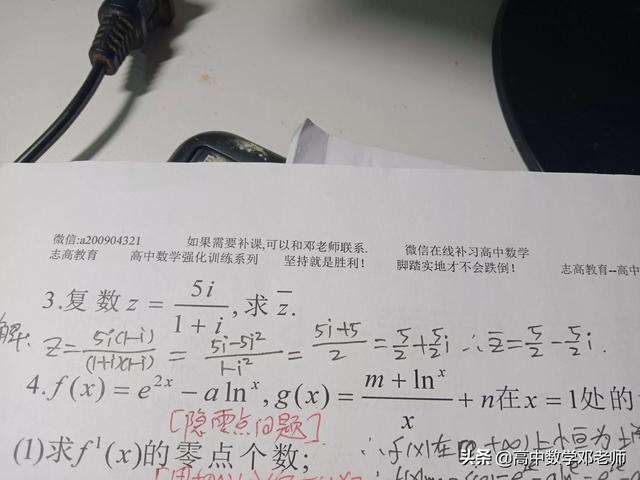 微信:a200904321 如果需要补课,可以和邓老师联系. 微信在线补习高中数学
志高教育 高中数学强化训练系列 坚持就是胜利! 脚踏实地才不会跌倒! 志高教育--高中
3.复数 z = 5i/(1+i), 求 z̄.
解: z = 5i(1-i)/(1+i)(1-i) = (5i-5i²)/(1-i²) = (5i+5)/2 = 5/2 + 5/2 i ∴ z̄ = 5/2 - 5/2 i.
4.f(x) = e^{2x} - a ln^x, g(x) = (m + ln^x)/x + n在x = 1处的
[隐零点问题]
(1)求f¹(x)的零点个数;
∴ f(x)在
头条 @高中数学邓老师